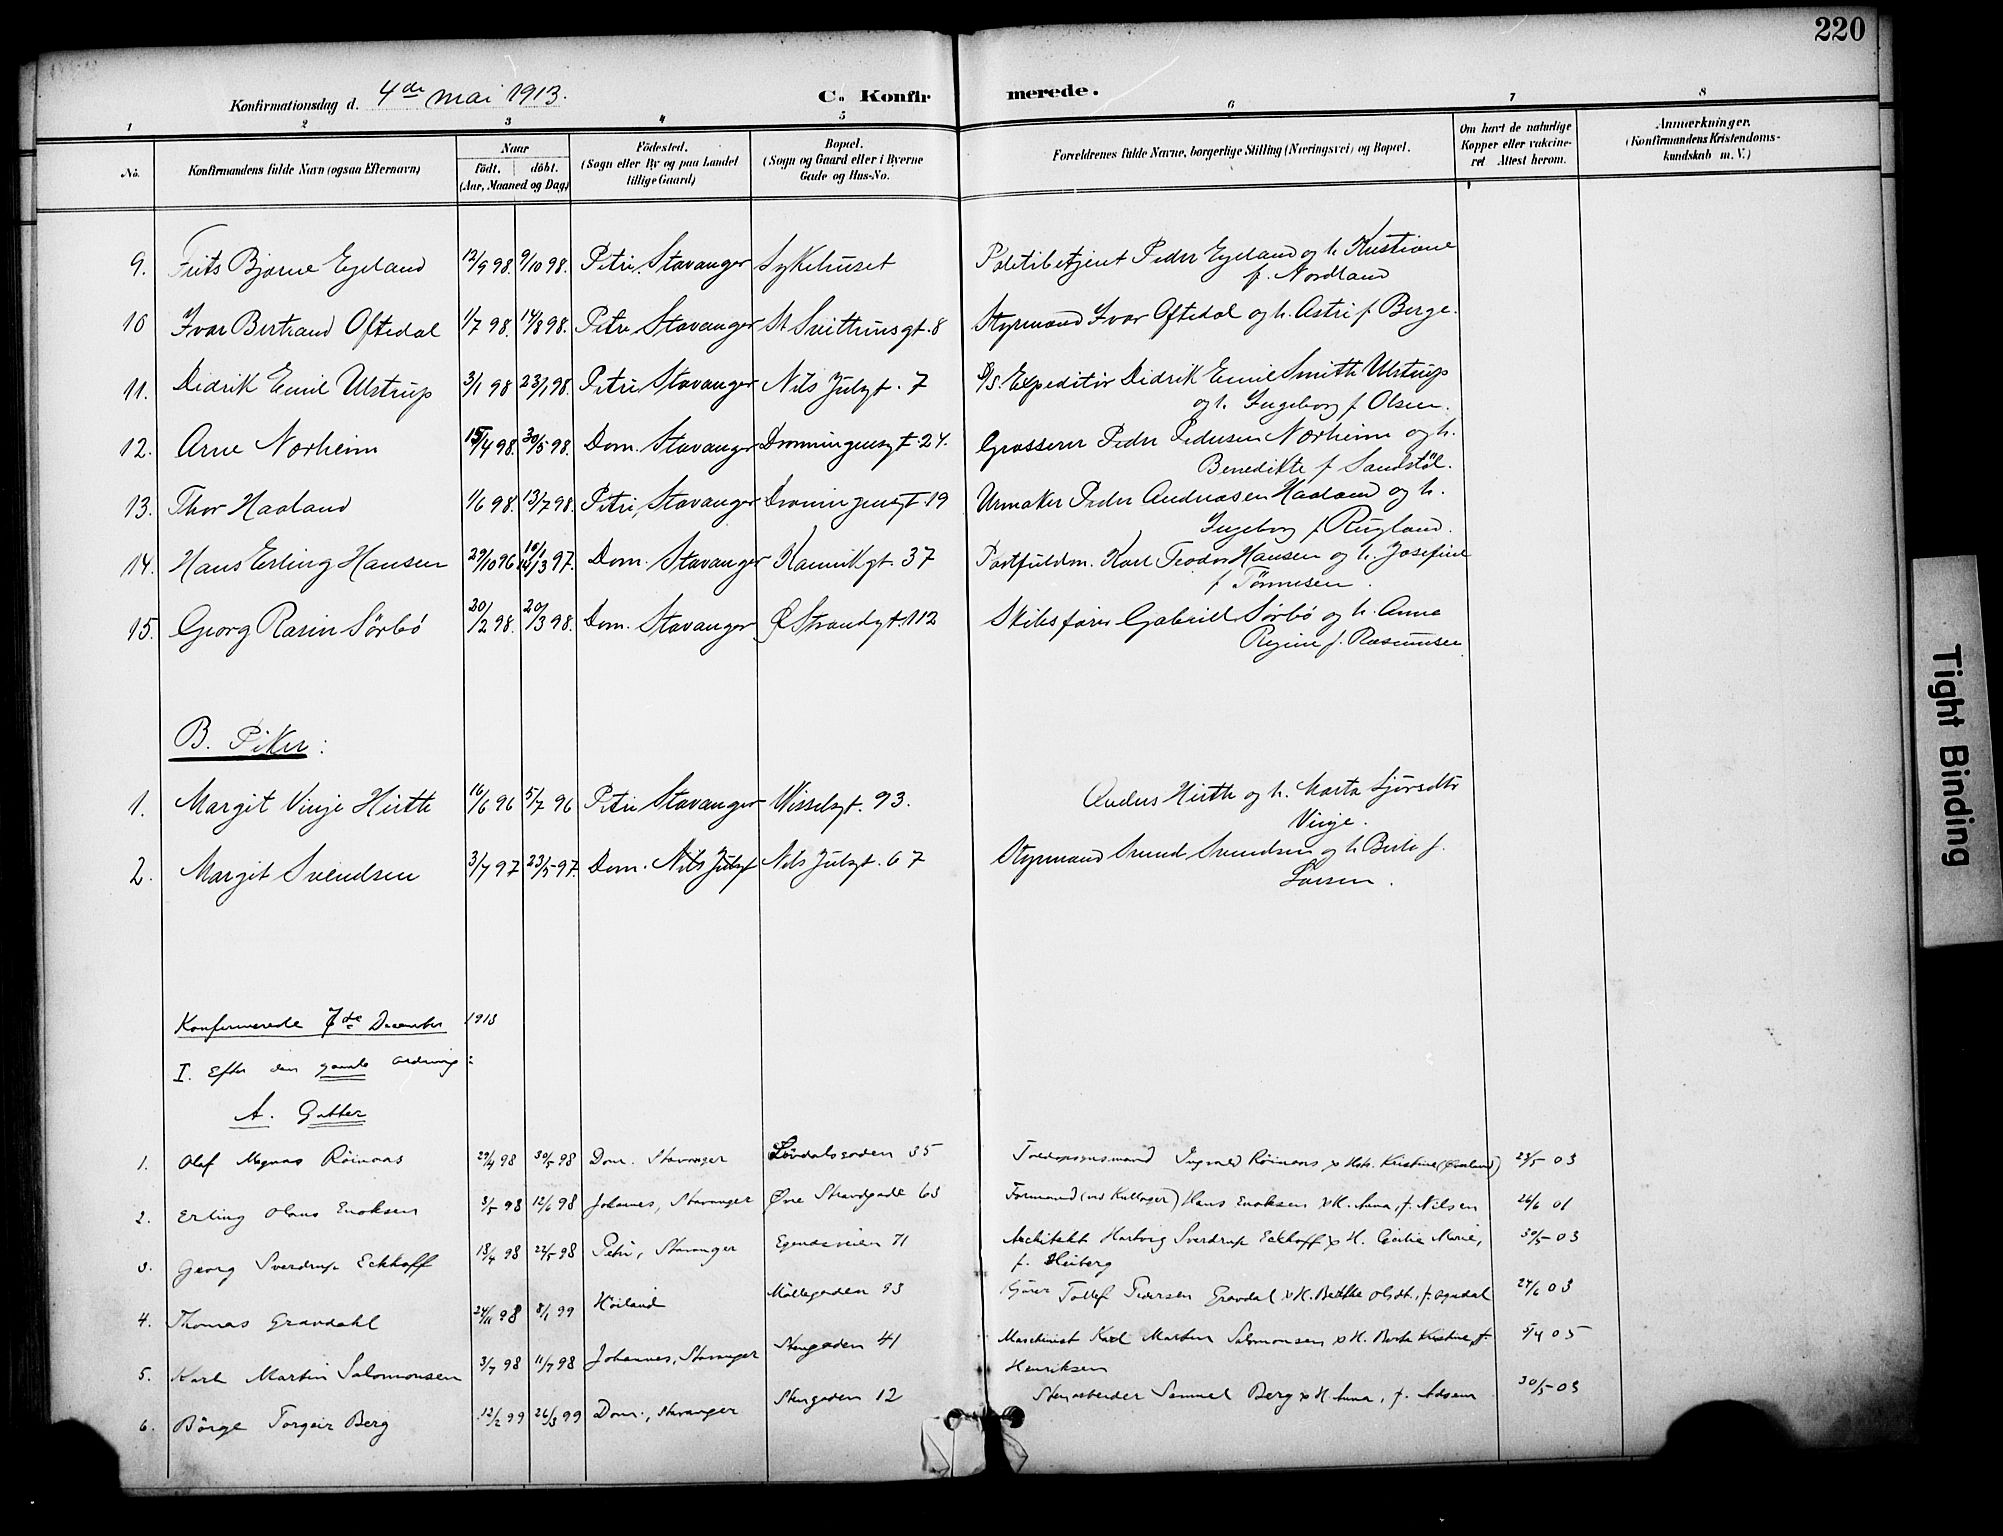 220
Konfirmationsdag d. 4de mai 1913. C. Konfirmerede.
1 2 3 4 5 6 7 8
No. Konfirmandens fulde Navn (ogsaa Efternavn) Naar født. døbt. (Aar, Maaned og Dag) Fødested. (Sogn eller By og paa Landet tillige Gaard) Bopæl. (Sogn og Gaard eller i Byerne Gade og Hus-No. Forældrenes fulde Navne, borgerlige Stilling (Næringsvei) og Bopæl. Om havt de naturlige Kopper eller vakcineret Attest herom. Anmærkninger. (Konfirmandens Kristendomskundskab m. V.)
9. Frits Bjarne Egeland 12/9 98. 9/10 98. Petri, Stavanger Sykehuset Politibetjent Peder Egeland og h. Kristiane
f. Nordland
10 Ivar Bertrand Oftedal 1/7 98. 14/8 98. Petri Stavanger St Smithusgt. 8 Styrmand Ivar Oftedal og h. Astri f. Berge.
11. Didrik Emil Ulstrup 3/1 98 23/1 98. Petri Stavanger Nils Julsgt. 7 D/S. Expeditør Didrik Emil Smith Ulstrup
og h. Ingeborg f. Olsen.
12. Arne Norheim 15/4 98. 30/5 98. Dom. Stavanger Dronningensgt. 24. Grosserer Peder Pedersen Norheim og h.
Benedikte f. Sandstøl.
13. Thor Haaland 1/6 98. 13/7 98. Petri, Stavanger Dronningensgt. 19 Urmaker Peder Andreasen Haaland og h.
Ingeborg f. Rugland.
14. Hans Erling Hansen 29/10 96 14/3 97. Dom. Stavanger Kannikgt. 37 Postfuldm. Karl Teodor Hansen og h. Josefine
f. Tönnesen.
15. Georg Rasin Sörbö 20/2 98. 20/3 98. Dom. Stavanger Ø Strandgt. 112 Skibsfører Gabriell Sørbö og h. Anna
Regine f. Rasmussen
B. Piker:
1. Margit Vinje Hirth 16/6 96 5/7 96 Petri Stavanger Nisselsgt. 93. Anders Hirth og h. Marta Sjursdtr
Vinje.
2. Margit Svendsen 3/4 97 23/5 97. Dom. Nils Julsgt Nils Julsgt. 67 Styrmand Svend Svendsen og h. Berte f.
Larsen.
Konfirmerede 7de December 1913
I. Efter den gamle ordning:
A. Gutter
1. Olaf Magnus Röinaas 29/4 98 30/5 98 Dom. Stavanger Lövdalsgaden 35 Toldopsynsmand Ingvald Röinaas & Hstr. Kristine 23/5 03
2. Erling Olaus Enoksen 3/5 98 12/6 98 Johannes, Stavanger Øvre Strandgade 63 Formand (ved Kullager) Hans Enoksen & H. Anna, f. Nilsen 26/6 01
3. Georg Sverdrup Eckhoff 18/4 98 22/5 98 Petri, Stavanger Egenesveien 71 Architekt Hartvig Sverdrup Eckhoff & H. Cecilie Marie, 30/5 03
f. Heiberg
4. Thomas Gravdahl 24/11 98 8/1 99 Höiland Möllegaden 93 Kjører Tollef Pedersen Gravdal & H. Berthe Olsdt., f. Ogedal 24/6 03
5. Karl Martin Salomonsen 3/7 98 11/7 98 Johannes, Stavanger Stengaden 41 Maschinist Karl Martin Salomonsen & H. Berte Kristine f. 5/4 05
Henriksen
6. Börge Torgeir Berg 12/2 99 26/3 99 Dom., Stavanger Stengaden 12 Stenarbeider Samuel Berg & H. Anna, f. Adsen 30/5 03
Tight Binding